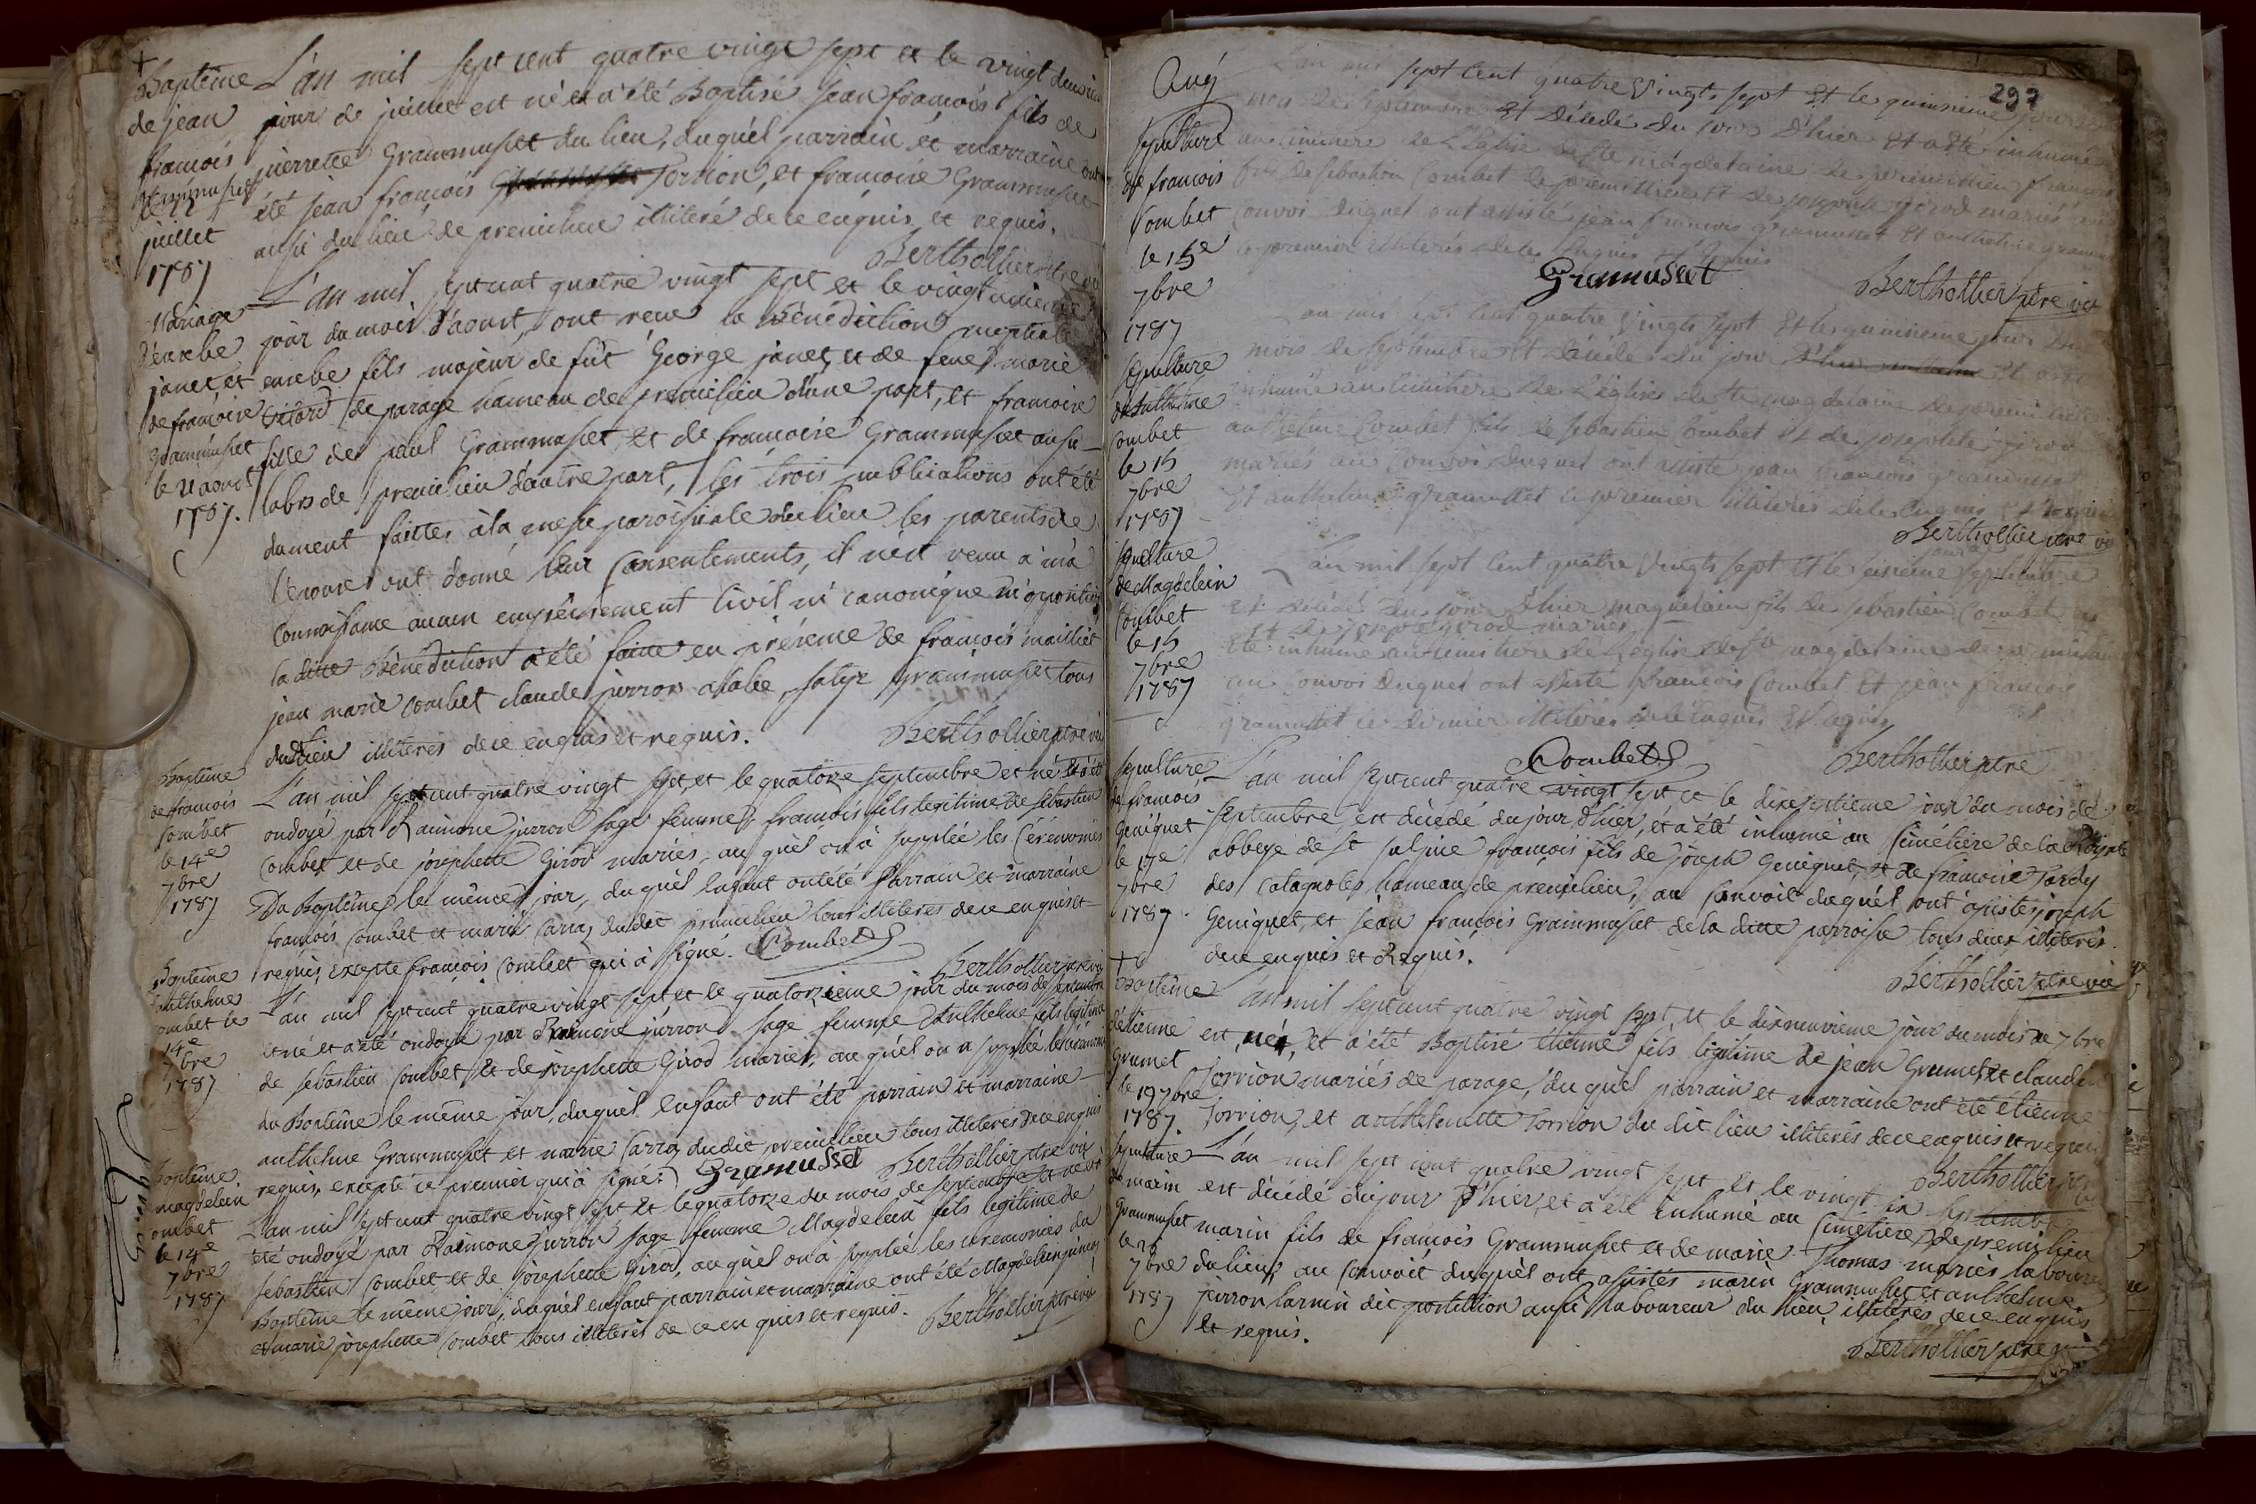 Baptême
de jean
francois
Grammusset
le 22
juillet
1787
L'an mil sept cent quatre vingt sept et le vingt deuxieme
jour de juillet est né et a été Baptisé jean francois fils de
pierrette Grammusset du lieu, duquel parrain et marraine ont
été jean francois Torrion, et francoise Grammusset
aussi du lieu de premilieu illiteré de ce enquis et requis.
Berthollier ptre vic
Mariage
d'eusebe
janet et
de francoise
Grammusset
le 21 aoust
1787.
L'an mil sept cent quatre vingt sept et le vingt unieme
jour du mois d'aoust, ont recu la Bénédiction nuptiale
eusebe fils majeur de fût George janet et de feue marie
de parage hameau de premilieu d'une part, et francoise
fille de paul Grammusset et de francoise Grammusset aussi
labrs de premilieu d'autre part, les trois publications ont été
dument faittes à la messe paroissiale du lieu les parents de
l'epouse ont donné leur Consentements, il n'est venu à ma
Connoissance aucun empêchement Civil ni canonique ni opposition
la ditte Bénédiction a été faitte en présence de francois mailliet
jean marie Combet claude jurron alabe, satyr Grammusset tous
dudt lieu illiterés de ce enquis et requis.
Berthollier ptre vic
Baptême
de francois
Combet
le 14e
7bre
1787
L'an mil sept cent quatre vingt sept et le quatorze septembre et né et a été
ondoyé par Raimone jurron sage femme francois fils legitime de sébastien
Combet et de josephette Girod mariés, auquel on à supplée les Cérémonies
Du Baptême le même jour, duquel Enfant ont été Parrain et marraine
francois Combet et marie Carra, dudit premilieu tous illiteres de ce enquis et
requis, excepté francois Combet qui à signé. Combet
Berthollier ptre vic
Baptême
d'anthelme
Combet le
14e
7bre
1787
L'an mil sept cent quatre vingt sept et le quatorzieme jour du mois de septembre
et né et a été ondoyé par Raimone jurron sage femme Anthelme fils legitime
de sebastien Combet et de josephette Girod mariés, auquel on a supplée les cérémonies
du Baptême le même jour, duquel Enfant ont été parrain et marraine
anthelme Grammusset et marie Carra, dudit premilieu tous illiteres de ce enquis
requis, excepté ce premier qui à signé. Gramusset Berthollier ptre vic
Baptême
magdelein
Combet
le 14e
7bre
1787
L'an mil sept cent quatre vingt sept et le quatorze du mois de septembre et né et à
été ondoyé par Raimone jurron sage femme Magdelein fils legitime de
sebastien Combet et de josephette Girod, auquel on à supplée les ceremonies du
Baptême le même jour, duquel enfant parrain et marraine ont été Magdelein
et marie josephette Combet tous illiterés de ce enquis et requis. Berthollier ptre vic
292
Sepulture
de francois
Combet
le 15e
7bre
1787
L'an mil sept cent quatre vingts sept Et le quinsieme jour du
mois de septembre Et décédé du jour d'hier Et a été inhumé
au cimitiere de L'Eglise de Ste magdelaine de premillieu francois
fils de sebastien Combet de premillieu Et de josephte girod mariés au
Convoi duquel ont assisté jean francois gramusset Et anthelme gramusset
le premier illiterés de ce Enquis Et Requis
Gramusset Berthollier ptre vic
Sepulture
d'anthelme
Combet
le 15
7bre
1787
L'an mil sept cent quatre vingts sept Et le quinsieme jour du
mois de septembre Et décédé du jour d'hier Et a été
inhumé au cimitiere de L'église de Ste magdelaine de premillieu
anthelme Combet fils de sebastien Combet Et de josephte girod
mariés au Convoi duquel ont assisté jean francois gramusset
Et anthelme gramusset le premier illiterés de ce Enquis Et Requis
Berthollier ptre vic
Sepulture
de Magdelein
Combet
le 15
7bre
1787
L'an mil sept cent quatre vingts sept Et le quinsieme jour de septembre
Et décédé du jour d'hier magdelain fils de sebastien Combet
Et de josepte girod mariés
Eté inhumé au cimitiere de L'église de Ste magdelaine de premillieu
au Convoi duquel ont assisté francois Combet Et jean francois
gramusset le dernier illiterés de ce Enquis Et Requis
Combet Berthollier ptre
Sepulture
de francois
Geniquet
le 17e
7bre
1787
L'an mil sept cent quatre vingt sept et le dixseptieme jour du mois de
septembre, est décédé du jour d'hier, et a été inhumé au Cimétiére de la Royale
abbeye de st sulpice francois fils de joseph Geniquet, et de francoise Tardy
des Catagnoles, hameau de premilieu, au Convoit duquél ont assistés joseph
Geniquet, et jean francois Grammusset de la ditte parroisse tous deux illiterés
de ce enquis et Requis.
Berthollier ptre vic
Baptême
d'étienne
Grumet
le 19 7bre
1787.
L'an mil sept cent quatre vingt sept, et le dixneuvieme jour du mois de 7bre
est né, et à été Baptisé étienne fils légitime de jean Grumet et claudine
Torrion mariés de parage, du quel parrain et marraine ont été étienne
Torrion, et anthelmette Torrion du dit lieu illiterés de ce enquis et requis
Berthollier ptre
Sepulture
de marin
Grammusset
7bre
1787
L'an mil sept cent quatre vingt sept et le vingt six septembre
est décédé du jour d'hier, et a été inhumé au Cimétiére de premilieu
marin fils de francois Grammusset et de marie Thomas mariés laboureurs
du lieu, au Convoit duquèl ont assistés marin Grammusset et anthelme
jurron larmin dit postillion aussi laboureur du lieu, illiterés de ce enquis
et requis.
Berthollier ptre vic